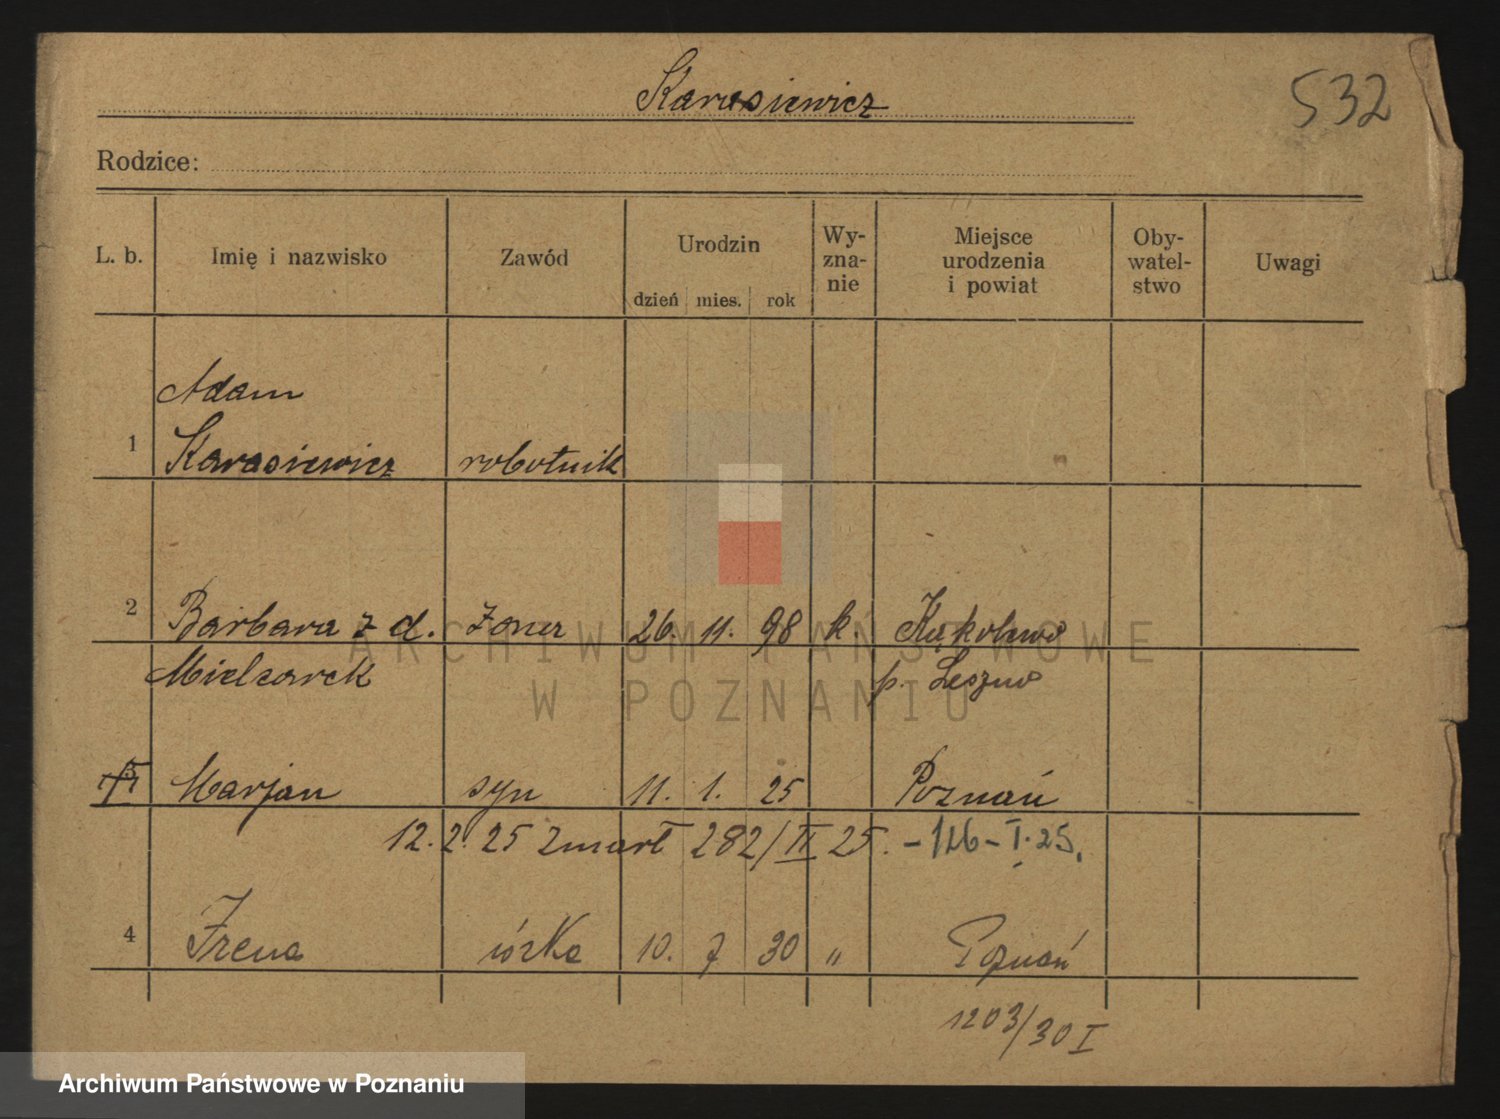 Karasiewicz
532
Rodzice:
L. b. Imię i nazwisko Zawód Urodzin dzień mies. rok Wy-zna-nie Miejsce urodzenia i powiat Oby-watel-stwo Uwagi
Adam
1 Karasiewicz robotnik
2 Barbara z d. żona 26. 11. 98 k. Kąkolewo
Mielcarek p. Leszno
Marjan syn 11. 1. 25 Poznań
12. 2. 25 zmarł 282/II 25. - 126 - I. 25.
4 Irena córka 10. 7 30 " Poznań
1203/30 I
ARCHIWUM PAŃSTWOWE
W POZNANIU
Archiwum Państwowe w Poznaniu